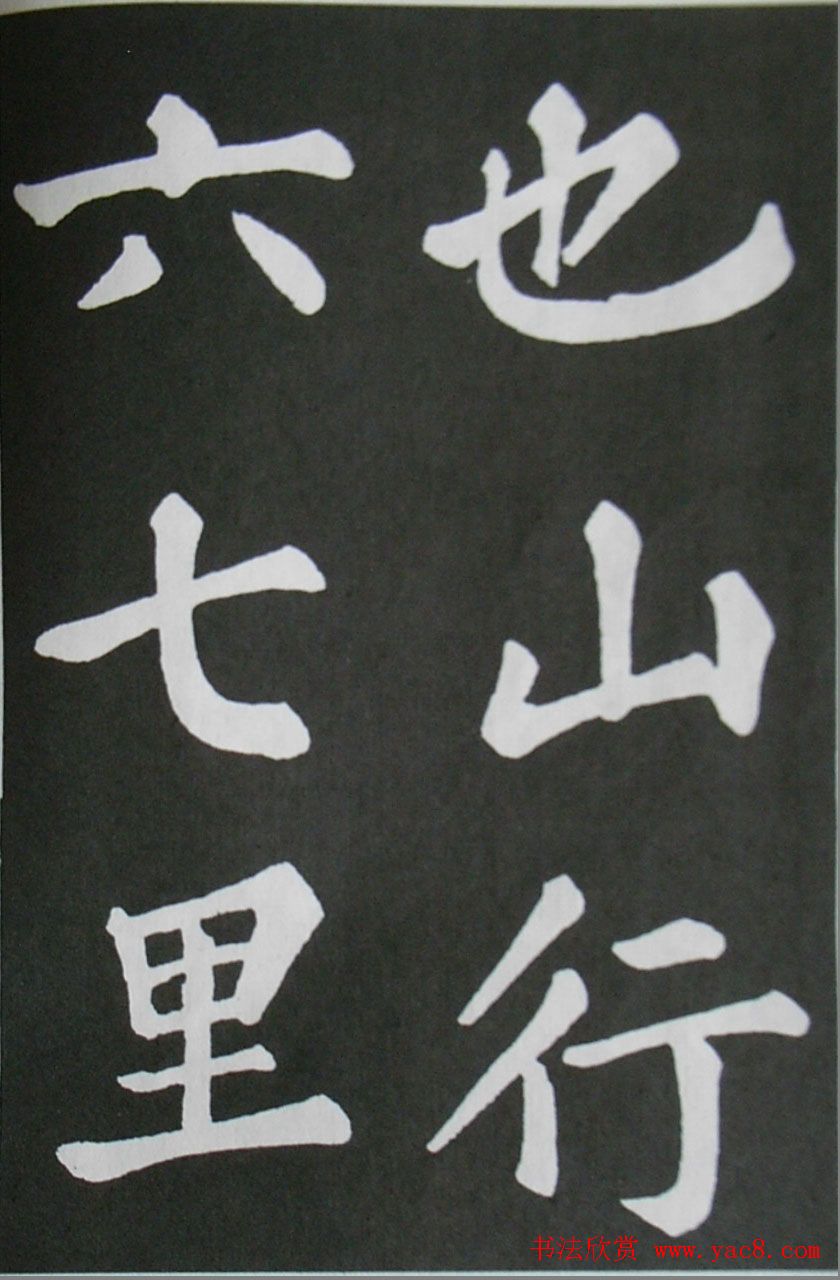 也山行
六七里
书法欣赏 www.yac8.com